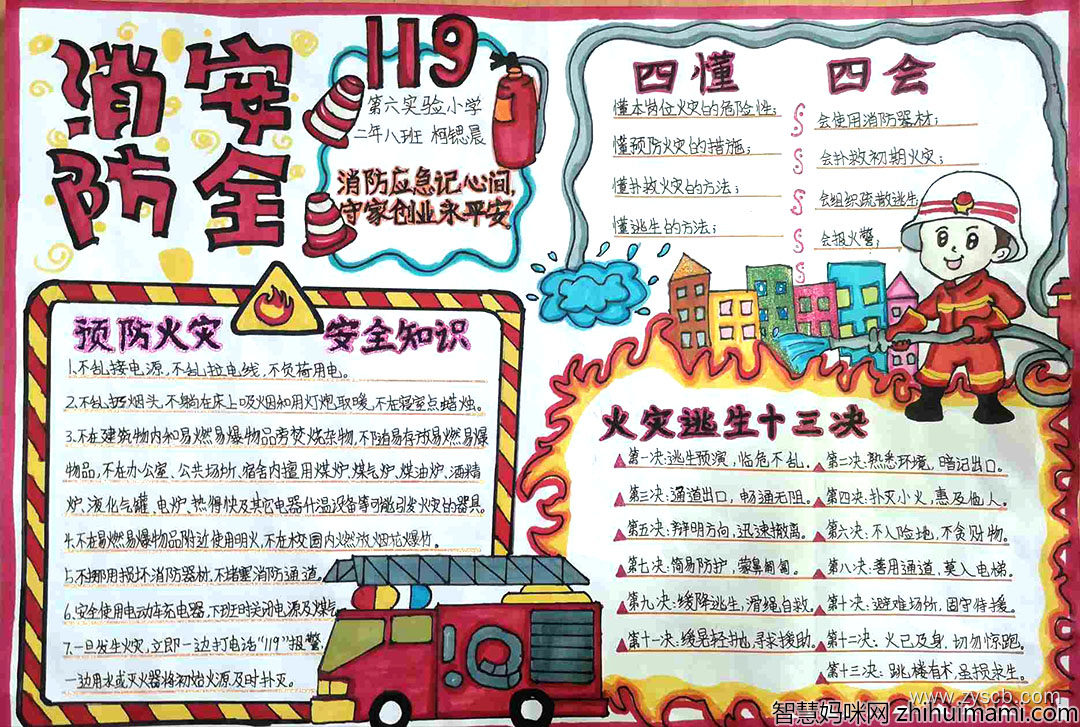 消防安全
119
第六实验小学
二年八班 柯锶晨
消防应急记心间,
守家创业永平安
四懂 四会
懂本岗位火灾的危险性;
懂预防火灾的措施;
懂扑救火灾的方法;
懂逃生的方法;
会使用消防器材;
会扑救初期火灾;
会组织疏散逃生
会报火警;
预防火灾 安全知识
1.不乱接电源,不乱拉电线,不负荷用电。
2.不乱扔烟头,不躺在床上吸烟和用灯炮取暖,不在寝室点蜡烛。
3.不在建筑物内和易燃易爆物品旁焚烧杂物,不随易存放易燃易爆
物品,不在办公室、公共场所、宿舍内擅用煤炉、煤气炉、煤油炉、酒精
炉、液化气罐、电炉、热得快及其它电器什温设备等可能引发火灾的器具。
4.不在易燃易爆物品附近使用明火,不在校园内燃放烟花爆竹。
5.不挪用损坏消防器材,不堵塞消防通道。
6.安全使用电动车充电器,下班时关闭电源及煤气
7.一旦发生火灾,立即一边打电话“119”报警,
一边用水或灭火器将初始火源及时扑灭。
火灾逃生十三决
第一决:逃生预演,临危不乱。 第二决:熟悉环境,暗记出口。
第三决:通道出口,畅通无阻。 第四决:扑灭小火,惠及他人。
第五决:辩明方向,迅速撤离。 第六决:不入险地,不贪财物。
第七决:简易防护,蒙鼻匍匐。 第八决:善用通道,莫入电梯。
第九决:缓降逃生,滑绳自救。 第十决:避难场所,固守待援。
第十一决:缓晃轻抛,寻求援助。 第十二决:火已及身,切勿惊跑。
第十三决:跳楼有术,虽损求生。
www.zyscb.com
智慧妈咪网 zhihuimami.com